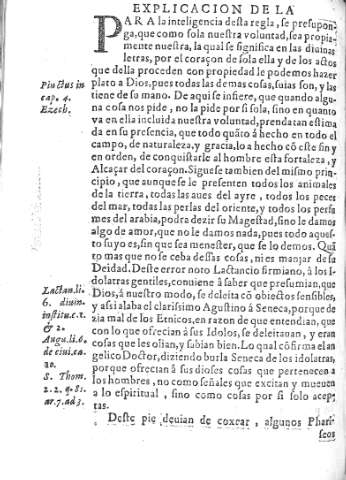 EXPLICACION DE LA
PARA la inteligencia desta regla, se presupon-
ga, que como sola nuestra voluntad, sea propia-
mente nuestra, la qual se significa en las diuinas
letras, por el coraçon de sola ella y de los actos
que della proceden con propiedad le podemos hazer
plato a Dios, pues todas las demas cosas, suias son, y las
tiene de su mano. De aqui se infiere, que quando algu-
na cosa nos pide, no la pide por si sola, sino en quanto
va en ella incluida nuestra voluntad, prenda tan estima
da en su presencia, que todo quãto à hecho en todo el
campo, de naturaleza, y gracia, lo a hecho cõ este fin y
en orden, de conquistarle al hombre esta fortaleza, y
Alcaçar del coraçon. Siguese tambien del mismo prin-
cipio, que aunque se le presenten todos los animales
de la tierra, todas las aues del ayre, todos los peces
del mar, todas las perlas del oriente, y todos los perfu
mes del arabia, podra dezir su Magestad, sino le damos
algo de amor, que no le damos nada, pues todo aques-
to suyo es, sin que sea menester, que se lo demos. Quã
to mas que no se ceba dessas cosas, ni es manjar de su
Deidad. Deste error noto Lactancio firmiano, à los I-
dolatras gentiles, conuiene à saber que presumian, que
Dios, à nuestro modo, se deleita cõ obiectos sensibles,
y assi alaba el clarissimo Agustino à Seneca, porque de
zia mal de los Etnicos, en razon de que entendian, que
con lo que ofrecian à sus Idolos, se deleitauan, y eran
cosas que les olian, y sabian bien. Lo qual cõfirma el an
gelico Doctor, diziendo burla Seneca de los idolatras,
porque ofrecian à sus dioses cosas que pertenecen a
los hombres, no como señales que excitan y mueuen
a lo espiritual, sino como cosas por si solo acep-
tas.
Deste pie deuian de coxear, algunos Phari-
seos
Pinctus in
cap. 4.
Ezech.
Lactan. li.
6. diuin.
institu. c. 1.
& 2.
Augu. li. 6.
de ciui. ca.
10.
S. Thom.
2. 2. q. 81.
ar. 7. ad 3.